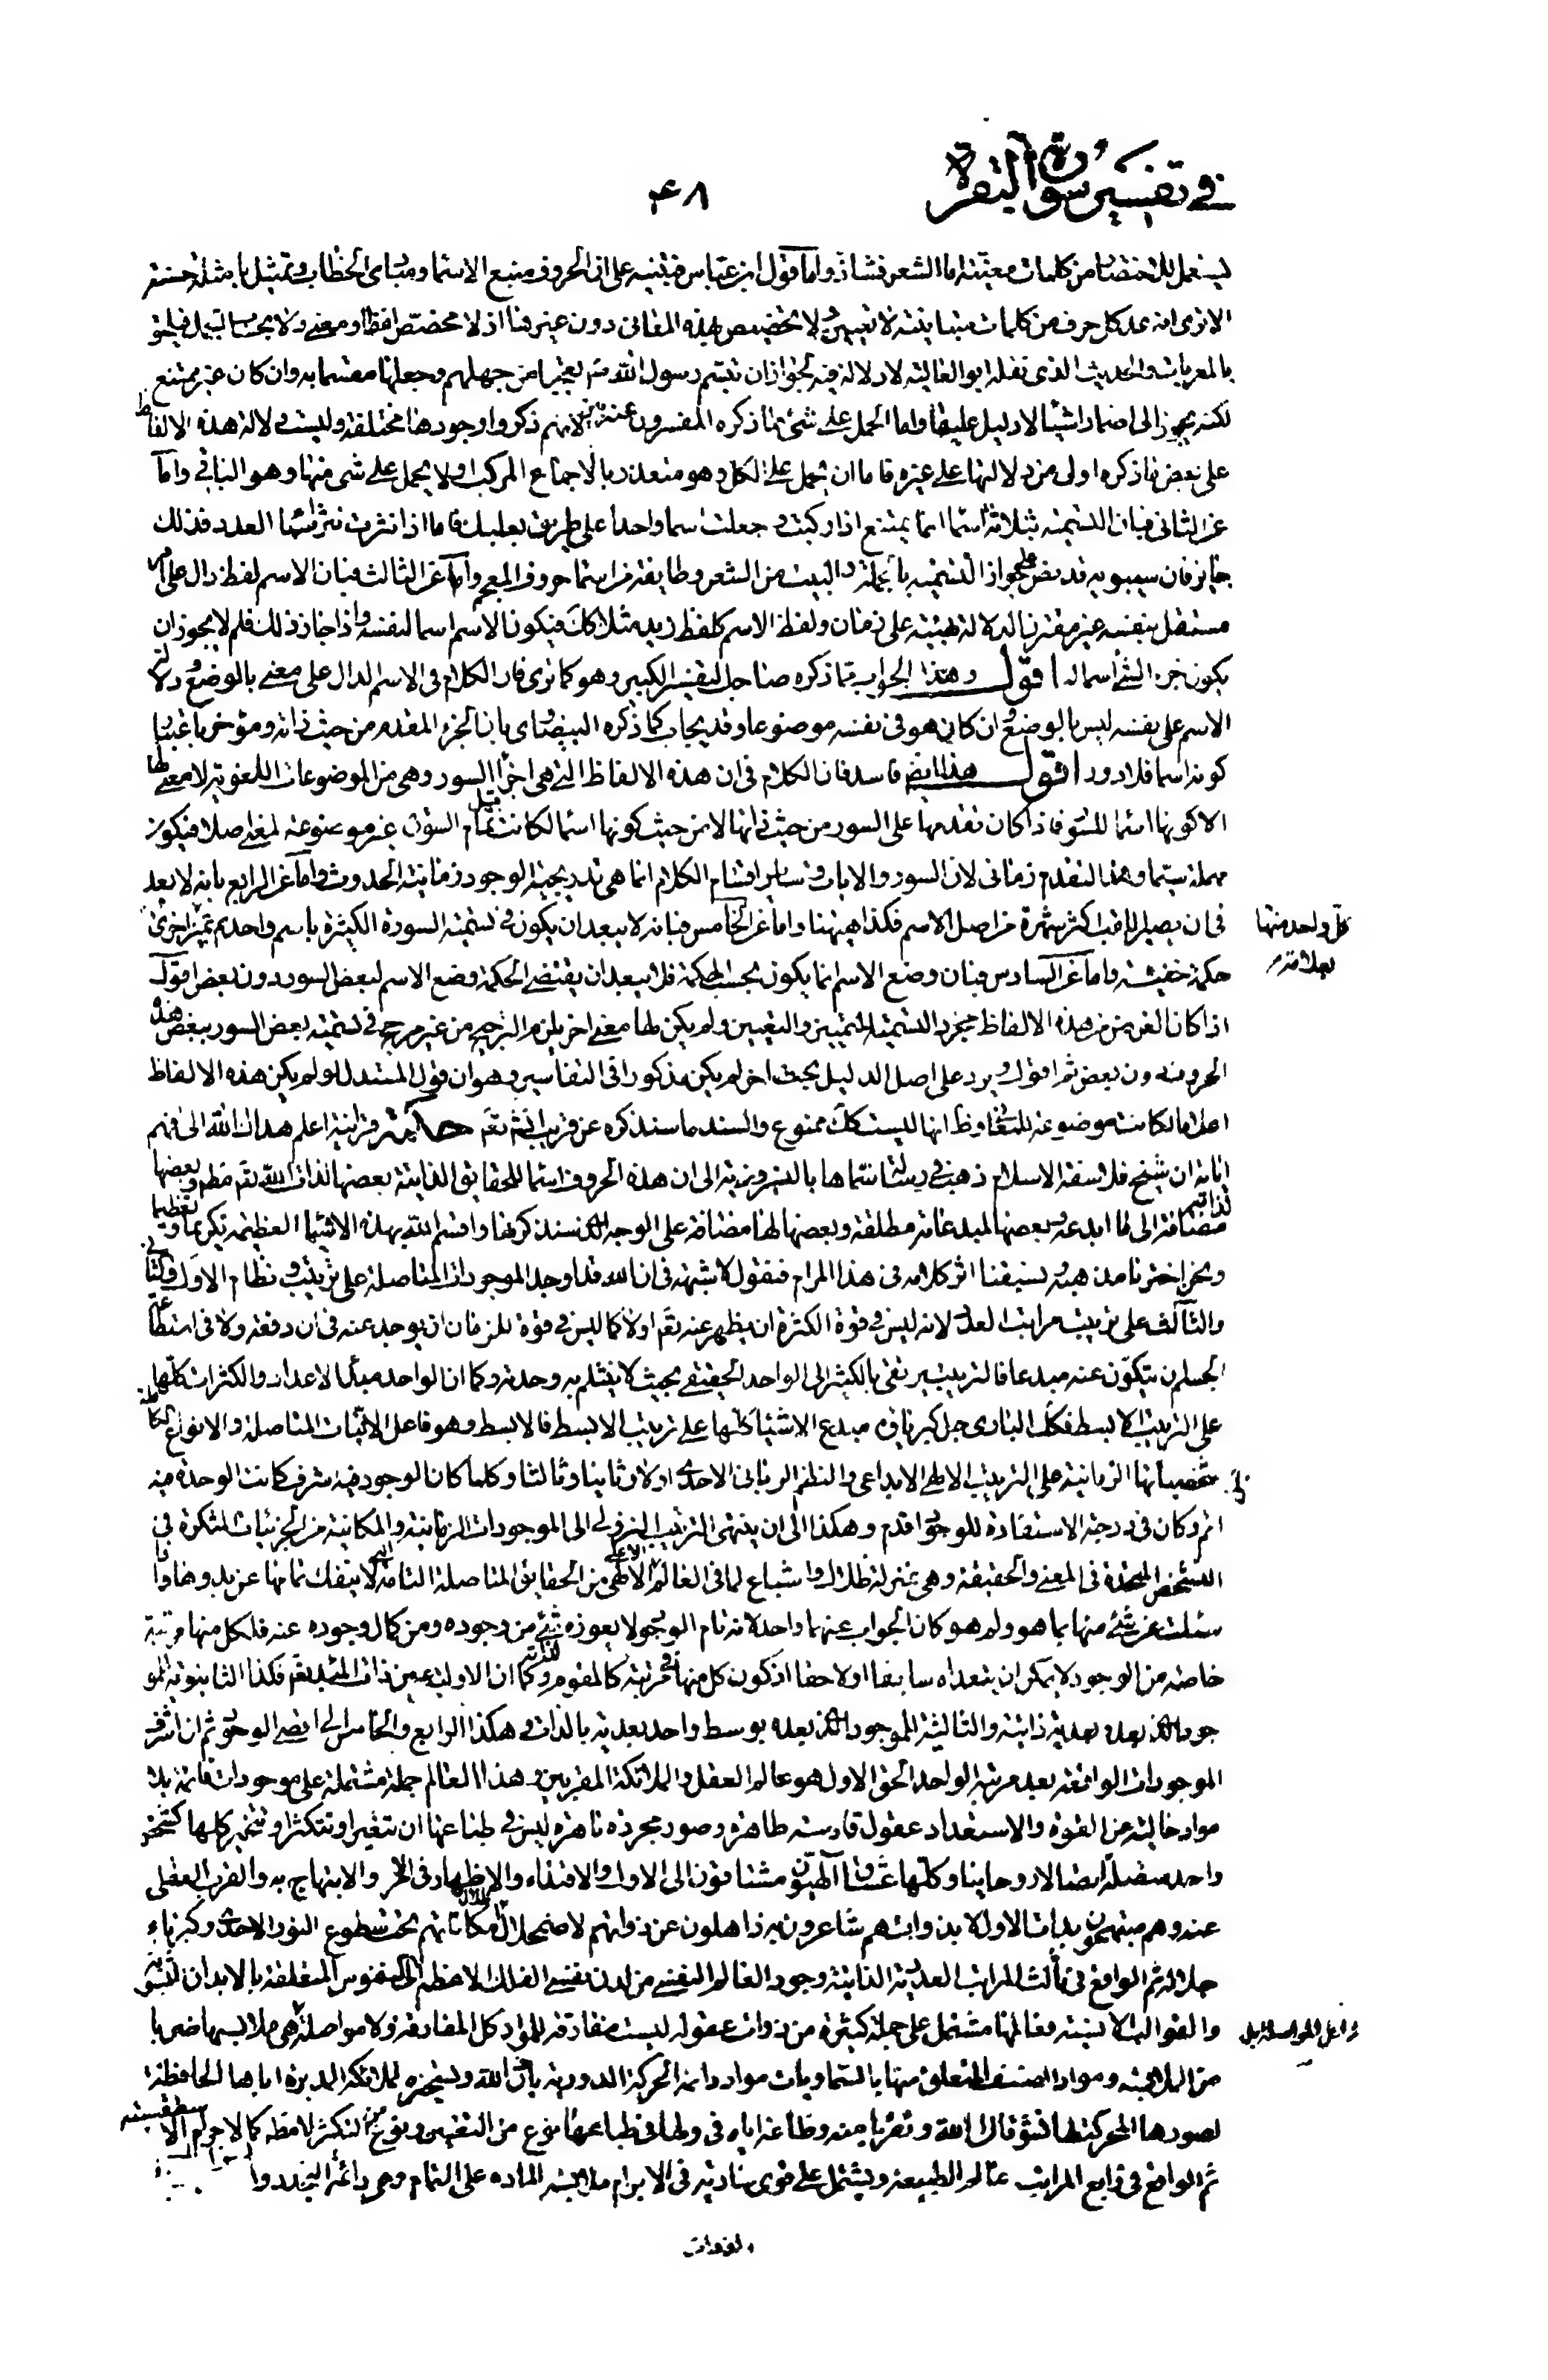 في تفسير سورة البقرة
۴۸
ليستعمل للاختصار من كلمات معينة اما الشعر فشاذ واما قول ابن عباس فتنبيه على ان الحروف منبع الاسماء ومبادى الخطاب وتمثيل بامثلة حسنة
الا ترى انه عد كل حرف من كلمات متباينة لا تفسير ولا تخصيص بهذه المعانى دون غيرها اذ لا مخصص لفظا ومعنى ولا بحساب الجمل فيلحق
بالمعربات والحديث الذى نقله ابو العالية لا دلالة فيه لجواز ان تبسم رسول الله ص تعجبا من جهلهم وجعلها مقسما بها وان كان غير ممتنع
لكنه يحوج الى اضمار اشياء لا دليل عليها واما الحمل على شئ مما ذكره المفسرون لانهم ذكروا وجوها مختلفة وليست دلالة هذه الالفاظ
على بعض ما ذكره اولى من دلالتها على غيره فاما ان يحمل على الكل وهو متعذر بالاجماع المركب او لا يحمل على شئ منها وهو الباقى واما
عن الثانى فبان التسمية بثلاثة اسماء انما يمتنع اذا ركبت وجعلت اسما واحدا على طريق بعلبك فاما اذا نثرت نثر اسماء العدد فذلك
جايز فان سيبويه قد نص على جواز التسمية بالجملة والبيت من الشعر وطايفة من اسماء حروف المعجم واما عن الثالث فبان الاسم لفظ دال على امر
مستقل بنفسه غير مقترن الدلالة بهيئته على زمان ولفظ الاسم كلفظ زيد مثلا كك فيكون الاسم اسما لنفسه واذا جاز ذلك فلم لا يجوز ان
يكون جزء الشئ اسما له اقول وهذا الجواب مما ذكره صاحب التفسير الكبير وهو كما ترى فان الكلام فى الاسم الدال على معنى بالوضع ودلالة
الاسم على نفسه ليس بالوضع وان كان هو فى نفسه موضوعا وقد يجاب كما ذكره البيضاوى بان الجزء المقدم من حيث ذاته ومؤخر باعتبار
كونه اسما فلا دور اقول هذا ايض فاسد فان الكلام فى ان هذه الالفاظ التى هى اجزاء السور وهى من الموضوعات اللغوية لا معنى لها
الا كونها اسماء للسور فاذا كان تقدمها على السور من حيث ذاتها لا من حيث كونها اسماء لكانت قبل تمام السورة غير موضوعة لمعنى اصلا فيكون
مهملة سيما وهذا التقدم زمانى لان السور والايات وساير اقسام الكلام انما هى تدريجية الوجود زمانية الحدوث واما عن الرابع بانه لا بعد
فى ان يصير اللقب اكثر شهرة من اصل الاسم فكذا هيهنا واما عن الخامس فبانه لا يبعد ان يكون فى تسمية السورة الكثيرة باسم واحد ثم تميز اخرى
كل واحد منها
بعلامة
حكمة خفية واما عن السادس فبان وضع الاسم انما يكون بحسب الحكمة فلا يبعد ان يقتضى الحكمة وضع الاسم لبعض السور دون بعض اقول
اذا كان الغرض من هذه الالفاظ مجرد التسمية للتمييز والتعيين ولم يكن لها معنى اخر يلزم الترجيح من غير مرجح فى تسمية بعض السور ببعض هذه
الحروف دون بعض ثم اقول ويرد على اصل الدليل بحث اخر لم يكن مذكورا فى التفاسير وهو ان قول المستدل لو لم يكن هذه الالفاظ
اعلاما لكانت موضوعة انها ليست كك ممنوع والسند ما سنذكره عن قريب انشاءالله تعم حكمة قرآنية اعلم هداك الله الى فهم
اياته ان شيخ فلاسفة الاسلام ذهب فى رسالة سماها بالنيروزية الى ان هذه الحروف اسماء للحقايق الذاتية بعضها لذات الله تعم مطلقة وبعضها
مضافة الى ما ابدعه وبعضها لمبدعاته مطلقة وبعضها لها مضافة على الوجه الذى سنذكرها واقسم الله بهذه الاشياء العظيمة تكريما وتعظيما
ونحن اخترنا مذهبه وسبقنا اثر كلامه فى هذا المرام فنقول لا شبهة فى ان الله قد اوجد الموجودات المتاصلة على ترتيب ونظام الاول والثانى
والثالث على ترتيب مراتب العدد لانه ليس فى قوة الكثرة ان يظهر عنه تعم اولا كما ليس فى قوة الزمان ان يوجد عنه فى ان دفعة ولا فى استطاعة
الجسم ان يتكون عنه مبدعا فالترتيب يرتقى بالكثير الى الواحد الحقيقى بحيث لا ينثلم به وحدته وكما ان الواحد مبدأ الاعداد والكثرات كلها
على الترتيب الابسط فكك البارى جل كبرياؤه مبدع الاشياء كلها على ترتيب الابسط فالابسط وهو فاعل الانيات المتاصلة والانواع
تشخصياتها الزمانية على الترتيب الالهى الابداعى والنظم الربانى الاحدى اولا وثانيا وثالثا وكلما كان الوجود فيه اشرف كانت الوحدة فيه
اتم وكان فى درجة الاستفادة للوجود اقدم وهكذا الى ان ينتهى الترتيب النزولى الى الموجودات الزمانية والمكانية من الجزئيات المتكثرة فى
التشخص المتحدة فى المعنى والحقيقة وهى بمنزلة ظلال واشباح لما فى العالم الاعلى الالهى من الحقايق المتاصلة التامة التى لا ينفك تمامها عن بدوها واذا
سئلت عن شئ منها بما هو ولم هو كان الجواب عنهما واحدا لانه تام الوجود لا يعوزه شئ من وجوده ومن كمال وجوده عنه فلكل منها مرتبة
خاصة من الوجود لا يمكن ان يتعداه سابقا او لاحقا اذ كون كل منها فى مرتبته كالمقوم لذاته وكما ان الاولية عين ذات المبدء تعم فكذا الثانوية للمو
جود الذى بعده بعدية ذاتية والثالثية للموجود الذى بعده بوسط واحد بعدية بالذات وهكذا الرابع والخامس الى اقصى الوجود ثم ان اشرف
الموجودات الواقعة بعد مرتبة الواحد الحق الاول هو عالم العقل والملائكة المقربين وهذا العالم جملة مشتملة على موجودات قائمة بلا
مواد خالية عن القوة والاستعداد عقول قادسة طاهرة وصور مجردة باهرة ليس فى طباعها ان تتغير او تتكثر او تتحير كلها كشخص
واحد متصلة اتصالا روحانيا وكلها عشاق الهيون مشتاقون الى الاول والاقتداء والاظهار لامره والابتهاج به والقرب العقلى
عنه وهم مبتهجون بذات الاول لا بذواتهم شاعرون به ذاهلون عن ذواتهم لاضمحلال امكاناتهم تحت سطوع النور الاحدى وكبرياء
جلاله ثم الواقع فى ثالث المراتب العددية الذاتية وجود العالم النفسى من لدن نفس الفلك الاعظم الى النفوس المتعلقة بالابدان البشرية
والقوالب الانسية وعالمها مشتمل على جملة كثيرة من ذوات عقوله ليست مفارقة للمواد كل المفارقة ولا مواصلة هى ملابسها ضربا
من الملابسة ومواد الصنف المتعلق منها بالسماويات مواد دائمة الحركة الدورية باذن الله وتسخيره للملائكة المدبرة اياها الحافظة
لصورها المحركة لها تشوقا الى الله وتقربا منه وطاعة اياه فى ولها فى طباعها نوع من التغير ونوع من التكثر لا مطلقا كالاجرام الاسطقسية
ثم الواقع فى رابع المراتب عالم الطبيعة ويشتمل على قوى سارية فى الاجرام ملابسة المادة على التمام وهى دائمة التجدد